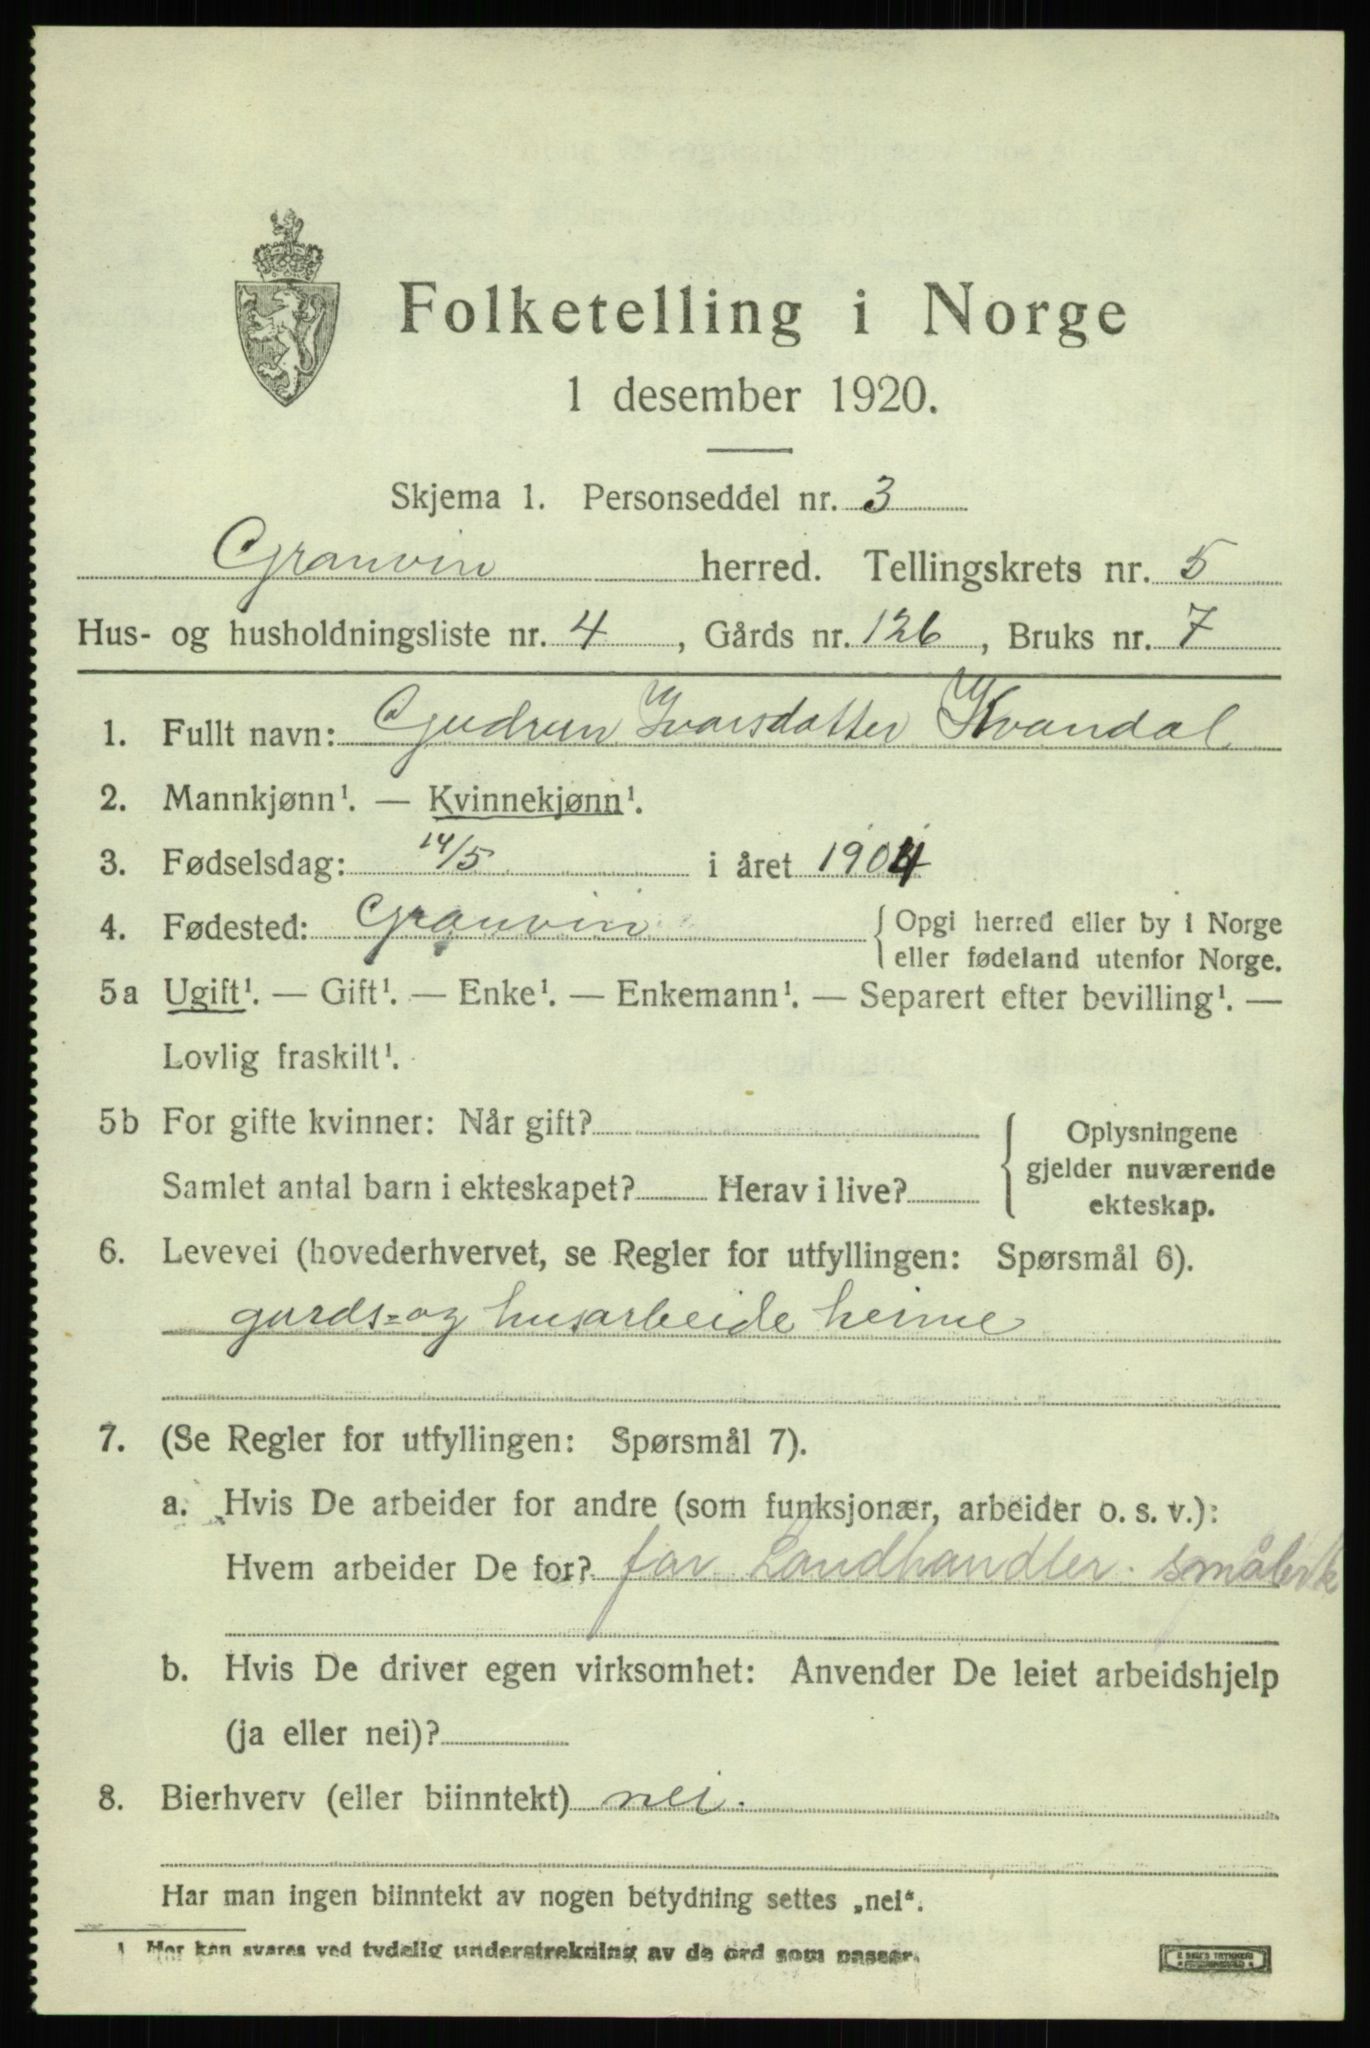 Folketelling i Norge
1 desember 1920.
Skjema 1. Personseddel nr. 3
Granvin herred. Tellingskrets nr. 5
Hus- og husholdningsliste nr. 4, Gårds nr. 126, Bruks nr. 7
1. Fullt navn: Gudrun Ivarsdatter Kvandal
2. Mannkjønn¹. — Kvinnekjønn¹.
3. Fødselsdag: 14/5 i året 1904
4. Fødested: Granvin { Opgi herred eller by i Norge
eller fødeland utenfor Norge.
5a Ugift¹. — Gift¹. — Enke¹. — Enkemann¹. — Separert efter bevilling¹. —
Lovlig fraskilt¹.
5b For gifte kvinner: Når gift?
Samlet antal barn i ekteskapet? Herav i live?
{ Oplysningene
gjelder nuværende
ekteskap.
6. Levevei (hovederhvervet, se Regler for utfyllingen: Spørsmål 6).
gards- og husarbeide heime
7. (Se Regler for utfyllingen: Spørsmål 7).
a. Hvis De arbeider for andre (som funksjonær, arbeider o. s. v.):
Hvem arbeider De for? far Landhandler. småbrk
b. Hvis De driver egen virksomhet: Anvender De leiet arbeidshjelp
(ja eller nei)?
8. Bierhverv (eller biinntekt) nei.
Har man ingen biinntekt av nogen betydning settes „nei“.
1 Her kan svares ved tydelig understrekning av de ord som passer.